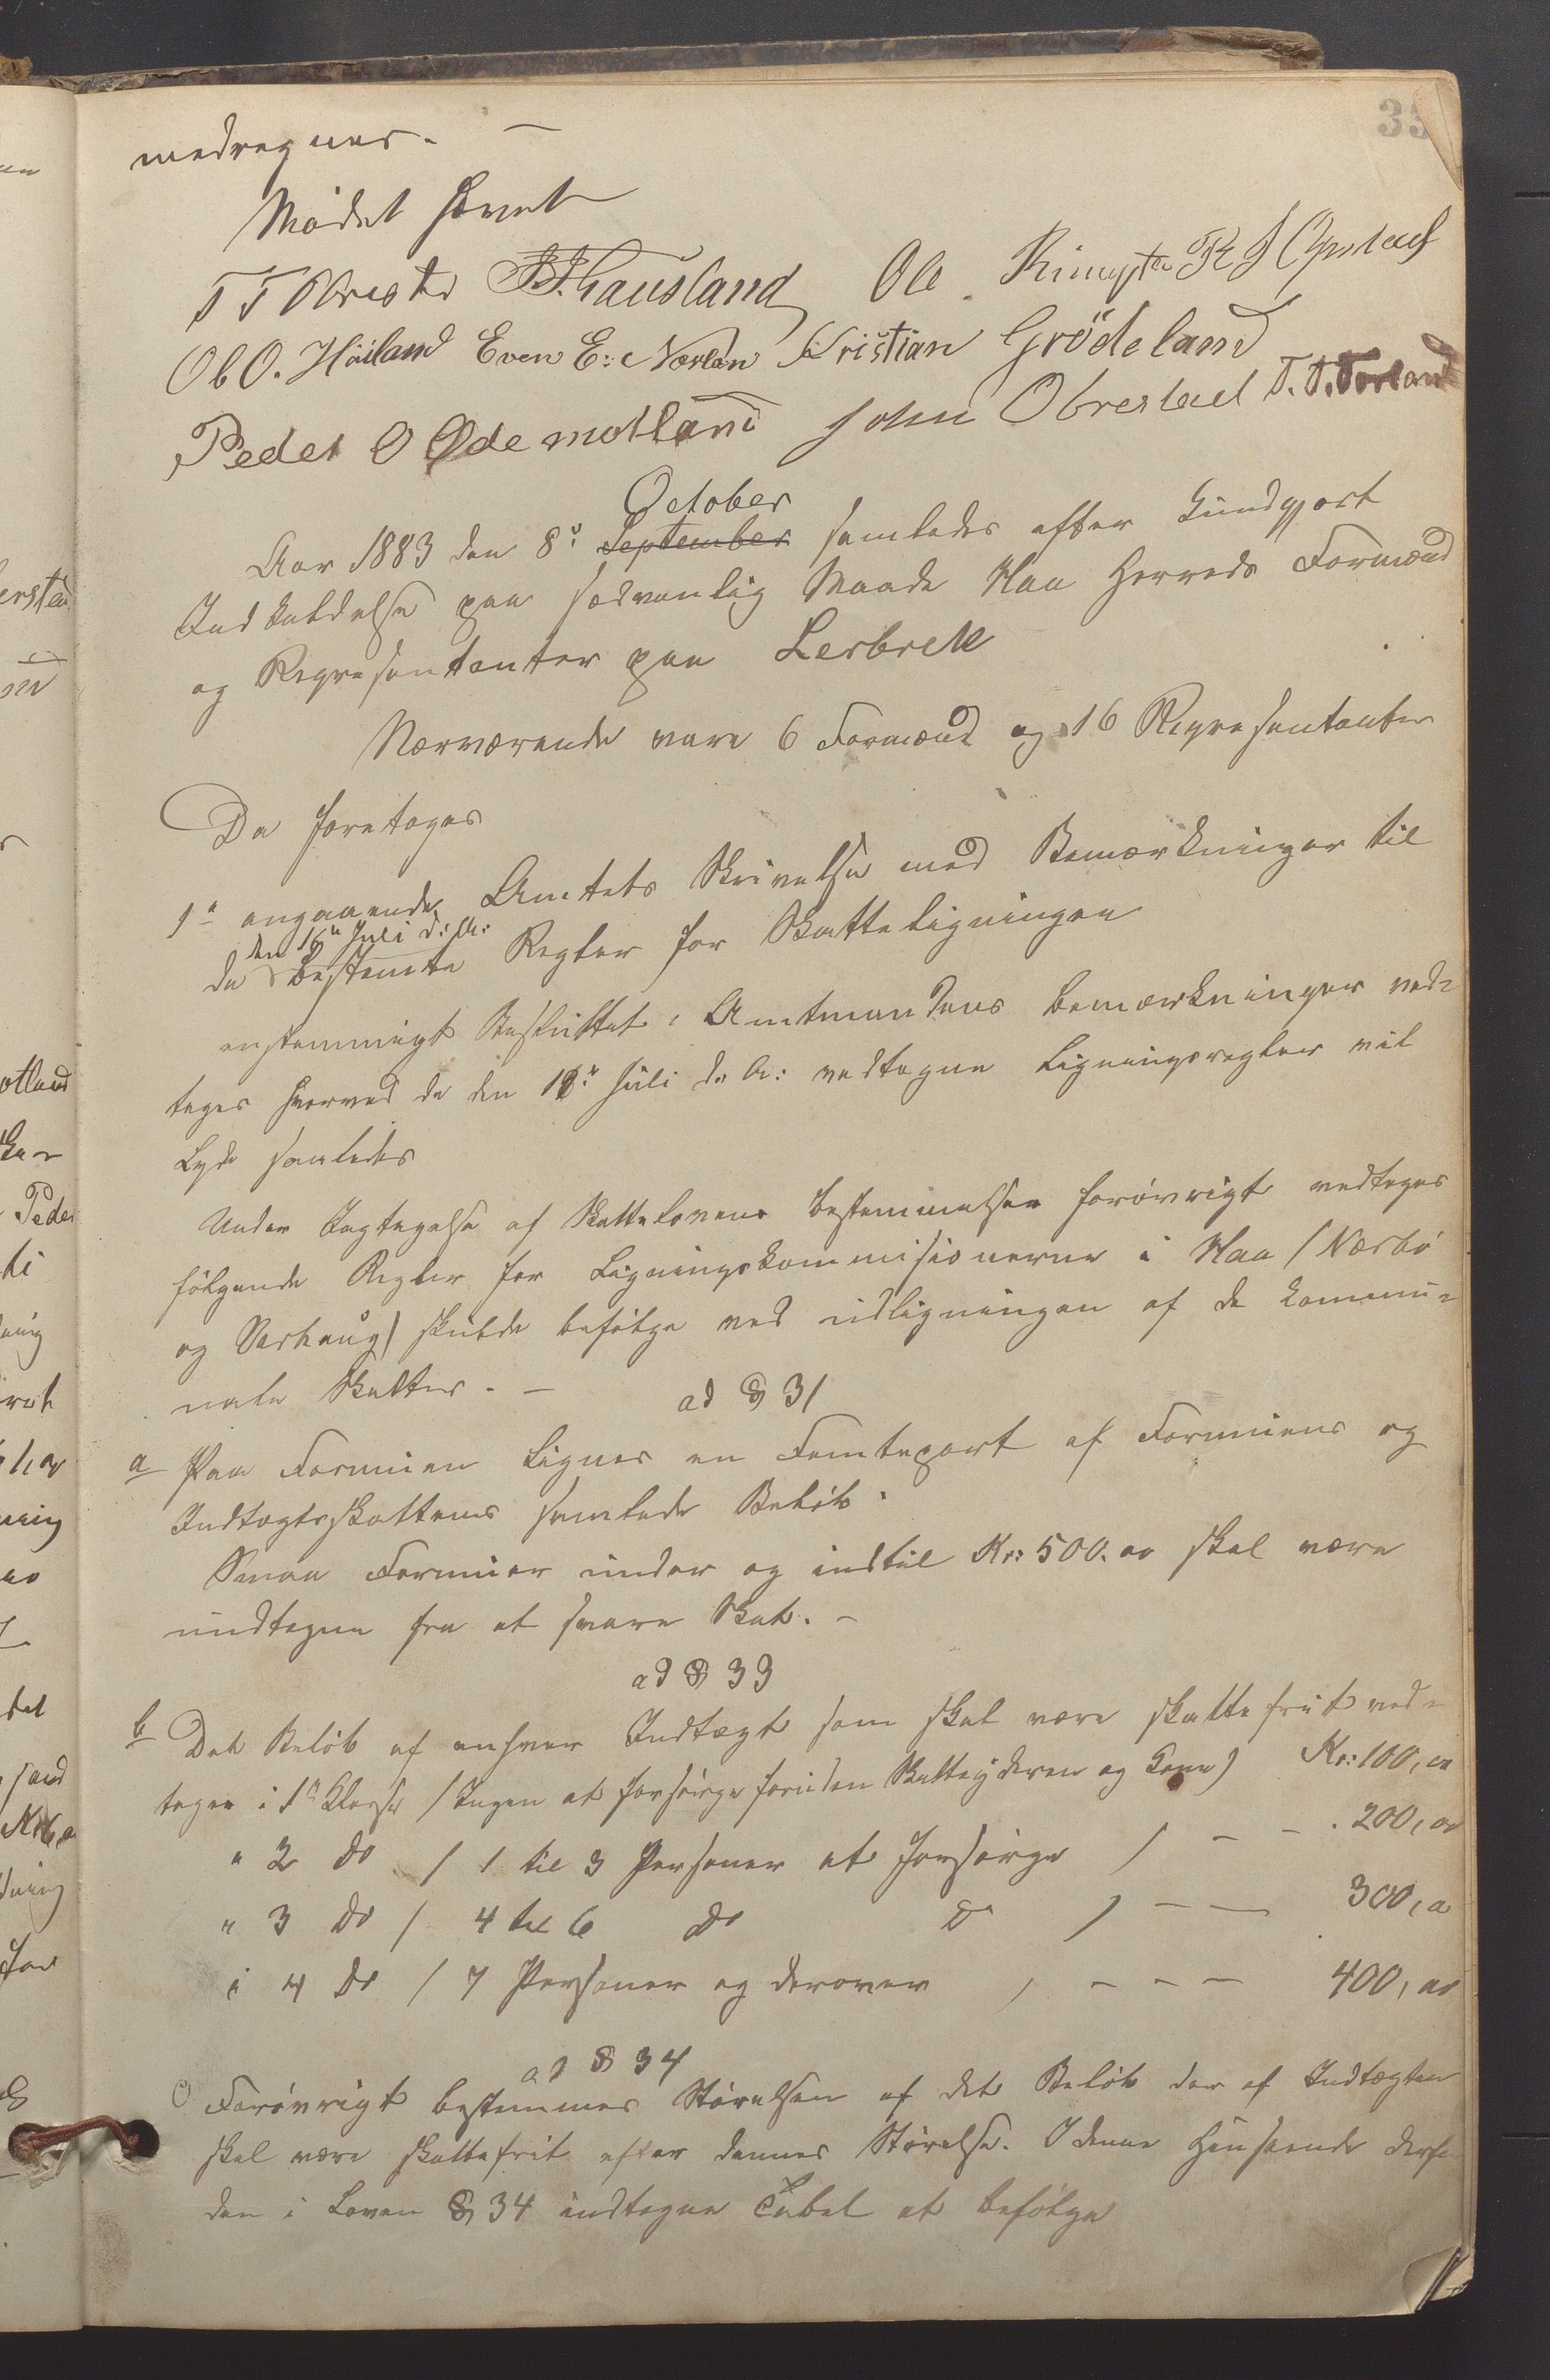 35
medregnes. —
Mødet hævet
T T Obrestad J. J. Hausland Ole Rimestad R J Opstad
Ol O. Höiland Even E: Nærlan Kristian Grödeland
Peder O Ødemotland John Obrestad T. T. Torland
October
Aar 1883 den 8de September samledes efter kundgjort
Indkaldelse paa sædvanlig Maade Haa Herreds Formænd
og Repræsentanter paa Lerbrek
Nærværende vare 6 Formænd og 16 Repræsentanter
Da foretoges
1o angaaende Amtets Skrivelse med Bemærkninger til
den 16de Juli d: A:
de bestemte Regler for Skatteligningen
enstemmigt Besluttet: Amtmandens bemærkninger ved-
tages hvorved de den 18de Juli d. A: vedtagne Ligningsregler vil
Lyde saaledes
Under Iagtagelse af Skattelovens bestemmelser forøvrigt vedtages
følgende Regler for Ligningskommisionerne i Haa / Nærbø
og Varhaug / skulde befølge ved udligningen af de kommu-
nale Skatter. —
ad § 31
a Paa Formuen Lignes en Femtepart af Formues og
Indtægtsskattens samlede Beløb.
Smaa Formuer under og indtil Kr: 500.00 skal være
undtagne fra at svare Skat. —
ad § 33
b Det Beløb af enhver Indtægt som skal være skattefrit ved-
tages i 1ste Classe / Ingen at forsørge foruden Skatteyderen og Kone) Kr: 100,00
" 2 do / 1 til 3 Personer at forsørge / — — . 200,00
" 3 do / 4 til 6 do do / — — 300,00
i 4 do / 7 Personer og derover / — — — 400,00
ad § 34
c Forøvrigt bestemmes Størelsen af det Beløb der af Indtægten
skal være skattefrit efter dennes Størelse. I denne Henseende
den i Loven § 34 indtagne Tabel at befølge